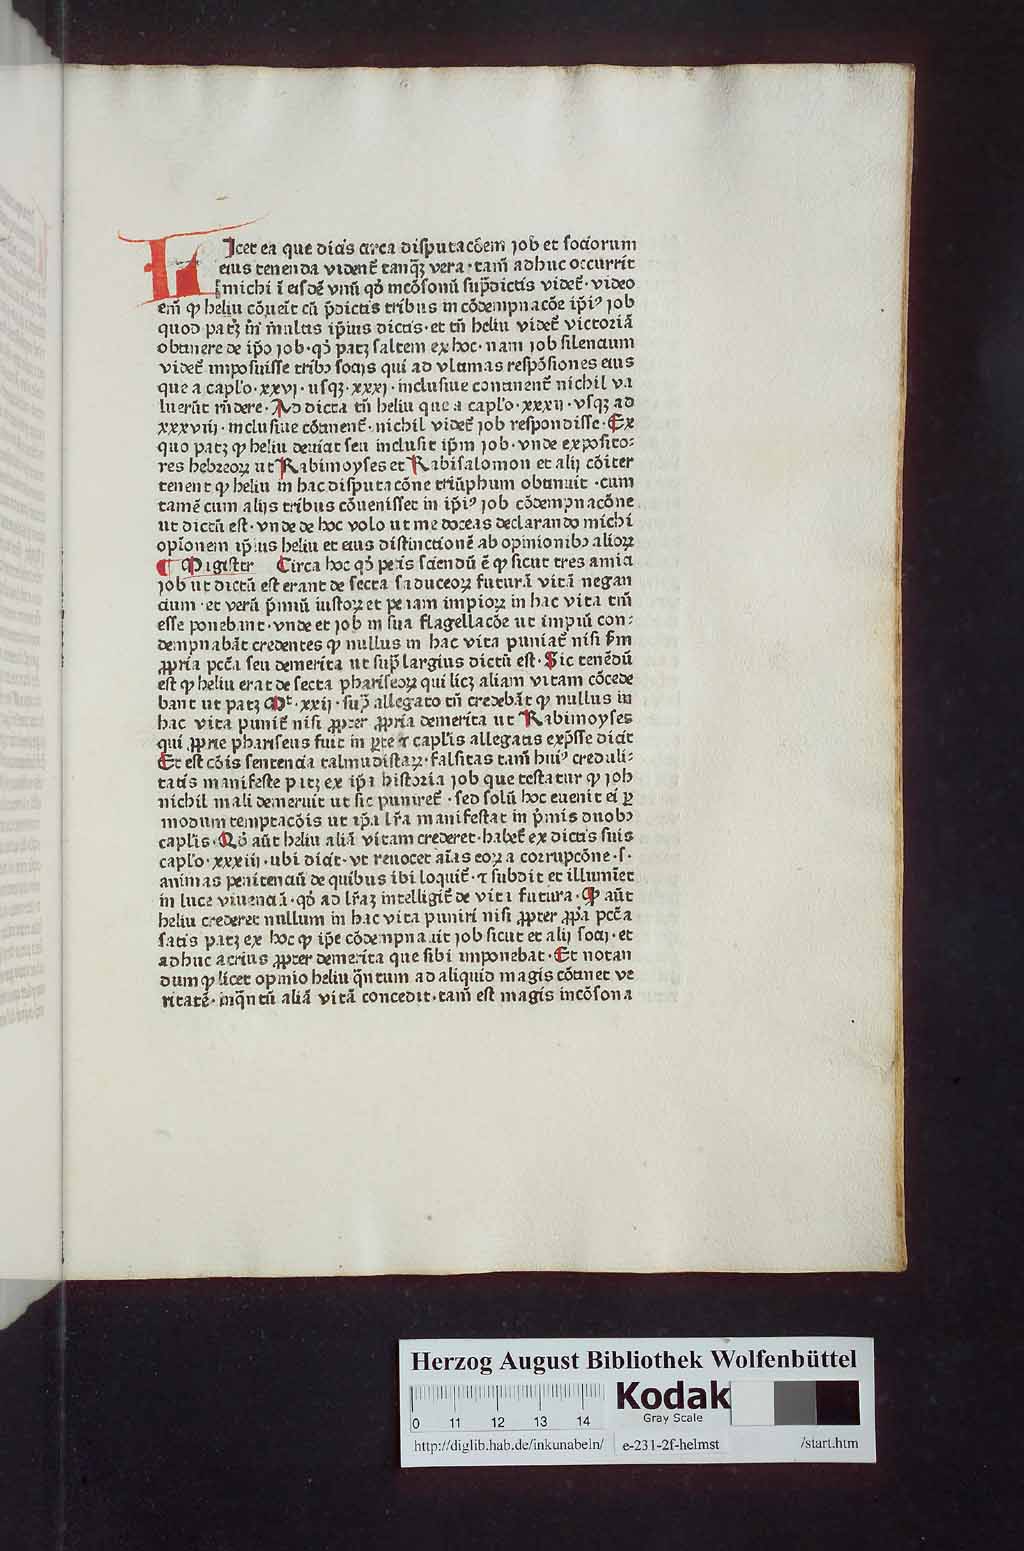 LIcet ea que dictis circa disputacōem job et sociorum
eius tenenda vident̄ tanq̄ꝫ vera · tam̄ adhuc occurrit
michi ī eisdē vnū qd̓ incōsonū sup̄dictis videt̄ · video
em̄ ꝙ heliu cōuenit cū p̄dictis tribus in cōdempnacōe ip̄iꝰ job
quod patꝫ in̄ multis ip̄ius dictis · et tn̄ heliu videt̄ victoriā
obtinere de ip̄o job · qd̓ patꝫ saltem ex hoc · nam job silencium
videt̄ imposuisse tribꝫ socijs qui ad vltimas respōsiones eius
que a capl̓o · xxvj · usqꝫ · xxxj · inclusiue continent̄ nichil va
luerūt rn̄dere · Ad dicta tn̄ heliu que a capl̓o · xxxij · vsqꝫ ad
xxxviij · inclusiue cōtinent̄ · nichil videt̄ job respondisse · Ex
quo patꝫ ꝙ heliu deuicit seu inclusit ip̄m job · vnde exposito⸗
res hebreoꝝ ut Rabimoyses et Rabisalomon et alij cōiter
tenent ꝙ heliu in hac disputacōne triūphum obtinuit · cum
tamē cum alijs tribus cōuenisset in ip̄iꝰ job cōdempnacōne
ut dictū est · vnde de hoc volo ut me doceas declarando michi
opīonem ip̄ius heliu et eius distinctionē ab opinionibꝫ alioꝝ
¶ Magister Circa hoc qd̓ petis sciendū ē ꝙ sicut tres amici
job ut dictū est erant de secta saduceoꝝ futurā vitā negan
cium · et verū p̄miū iustoꝝ et penam impioꝝ in hac vita tm̄
esse ponebant · vnde et job in sua flagellacōe ut impiū con⸗
dempnabāt credentes ꝙ nullus in hac vita puniat̄ nisi s̄m
ꝓpria pcc̄a seu demerita ut sup̄ largius dictū est · Sic tenēdū
est ꝙ heliu erat de secta phariseoꝝ qui licꝫ aliam vitam cōcede
bant ut patꝫ Mt̓ · xxij · sup̄ allegato tn̄ credebāt ꝙ nullus in
hac vita punit̄ nisi ꝓpter ꝓpria demerita ut Rabimoyses
qui ꝓprie phariseus fuit in ꝑte ⁊ capl̓is allegatis exp̄sse dicit
Et est cōis sentencia talmudistaꝝ · falsitas tam̄ huiꝰ creduli⸗
tatis manifeste patꝫ ex ip̄a historia job que testatur ꝙ job
nichil mali demeruit ut sic puniret̄ · sed solū hoc euenit ei ꝑ
modum temptacōis ut ip̄a lr̄a manifestat in p̄mis duobꝫ
capl̓is · Qd̓ aūt heliu aliā vitam crederet · habet̄ ex dictis suis
capl̓o · xxxiij · ubi dicit · vt reuocet aīas eoꝝ a corrupcōne · s ·
animas penitenciū de quibus ibi loquit̄ · ⁊ subdit et illumīet
in luce viuenciū · qd̓ ad lr̄aꝫ intelligit̄ de vita futura · Qd̓ aūt
heliu crederet nullum in hac vita puniri nisi ꝓpter ꝓp̄a pcc̄a
satis patꝫ ex hoc ꝙ ip̄e cōdempnauit job sicut et alij socij · et
adhuc acrius ꝓpter demerita que sibi imponebat · Et notan
dum ꝙ licet opinio heliu q̄ntum ad aliquid magis cōtinet ve
ritatē · inq̄ntū aliā vitā concedit · tam̄ est magis incōsona
Herzog August Bibliothek Wolfenbüttel
0 11 12 13 14
Kodak
Gray Scale
http://diglib.hab.de/inkunabeln/ e-231-2f-helmst /start.htm